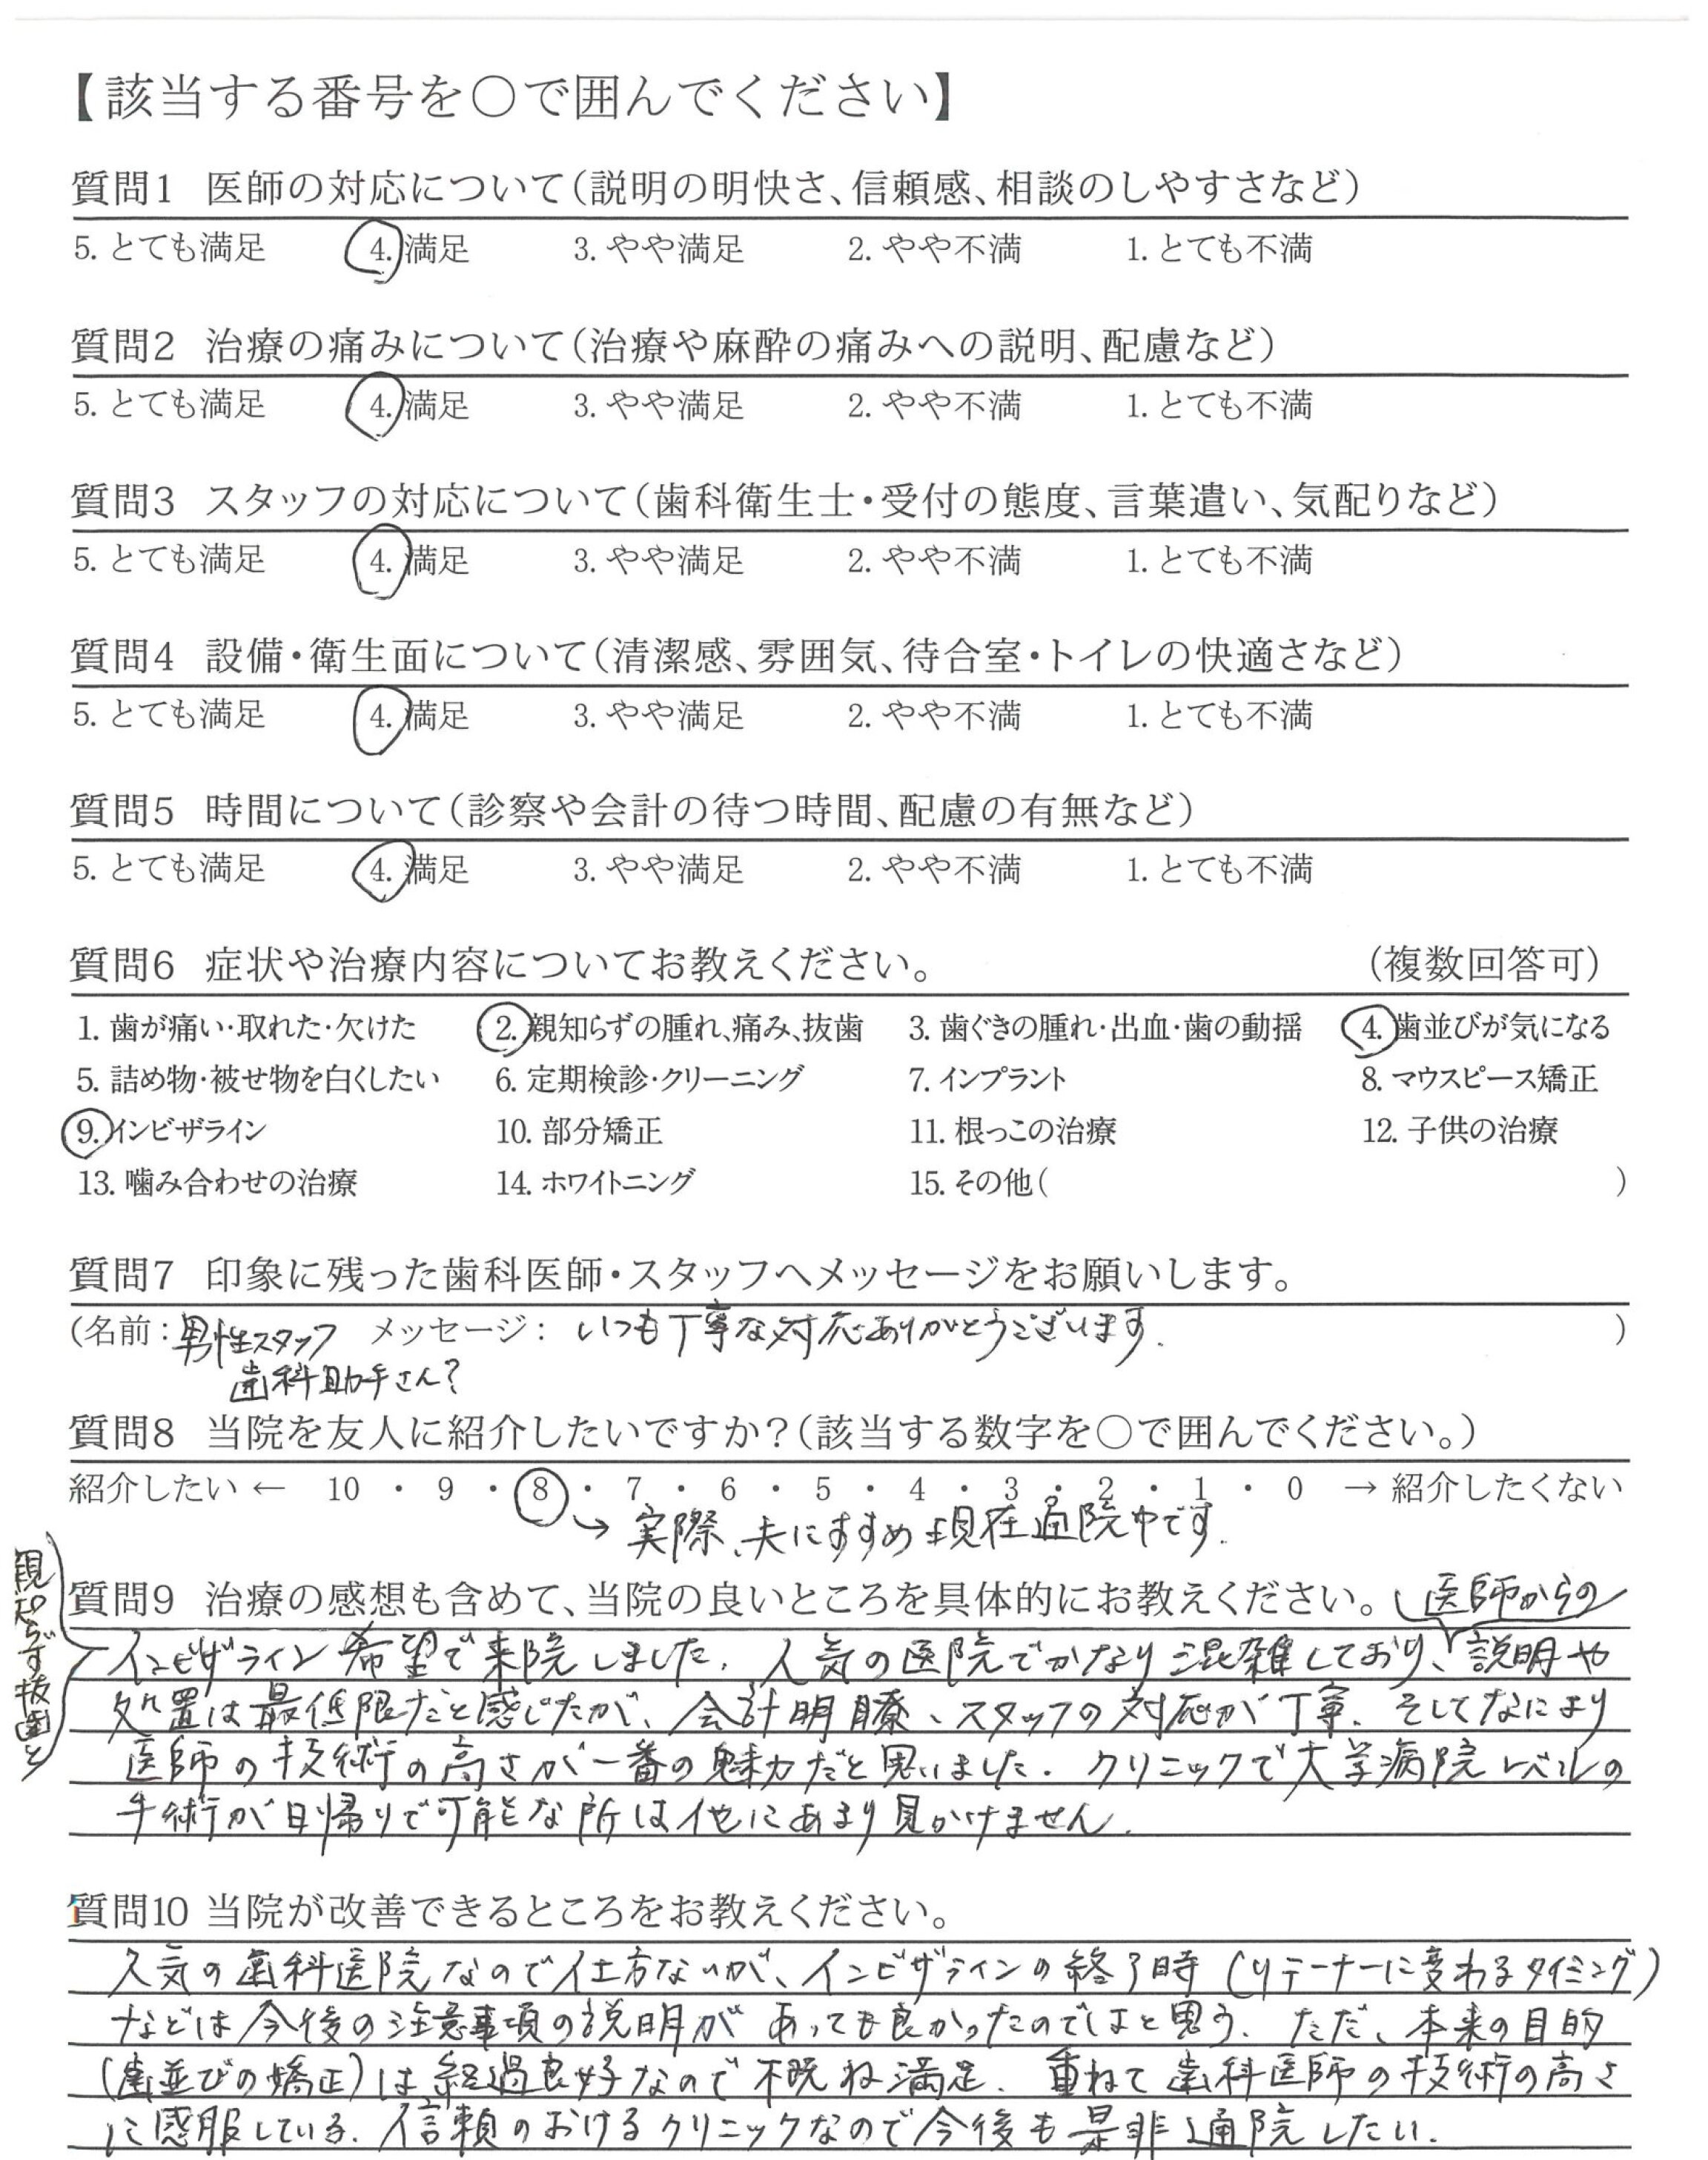 【該当する番号を〇で囲んでください】
質問1 医師の対応について(説明の明快さ、信頼感、相談のしやすさなど)
5. とても満足 4. 満足 3. やや満足 2. やや不満 1. とても不満
質問2 治療の痛みについて(治療や麻酔の痛みへの説明、配慮など)
5. とても満足 4. 満足 3. やや満足 2. やや不満 1. とても不満
質問3 スタッフの対応について(歯科衛生士・受付の態度、言葉遣い、気配りなど)
5. とても満足 4. 満足 3. やや満足 2. やや不満 1. とても不満
質問4 設備・衛生面について(清潔感、雰囲気、待合室・トイレの快適さなど)
5. とても満足 4. 満足 3. やや満足 2. やや不満 1. とても不満
質問5 時間について(診察や会計の待つ時間、配慮の有無など)
5. とても満足 4. 満足 3. やや満足 2. やや不満 1. とても不満
質問6 症状や治療内容についてお教えください。 (複数回答可)
1. 歯が痛い・取れた・欠けた 2. 親知らずの腫れ、痛み、抜歯 3. 歯ぐきの腫れ・出血・歯の動揺 4. 歯並びが気になる
5. 詰め物・被せ物を白くしたい 6. 定期検診・クリーニング 7. インプラント 8. マウスピース矯正
9. インビザライン 10. 部分矯正 11. 根っこの治療 12. 子供の治療
13. 噛み合わせの治療 14. ホワイトニング 15. その他( )
質問7 印象に残った歯科医師・スタッフへメッセージをお願いします。
(名前:男性スタッフ メッセージ: いつも丁寧な対応ありがとうございます. )
歯科助手さん?
質問8 当院を友人に紹介したいですか?(該当する数字を〇で囲んでください。)
紹介したい ← 10 ・ 9 ・ 8 ・ 7 ・ 6 ・ 5 ・ 4 ・ 3 ・ 2 ・ 1 ・ 0 → 紹介したくない
→ 実際、夫にすすめ現在通院中です.
質問9 治療の感想も含めて、当院の良いところを具体的にお教えください。
親知らず抜歯と
医師からの
インビザライン希望で来院しました. 人気の医院でかなり混雑しており、説明や
処置は最低限だと感じたが、会計明瞭、スタッフの対応が丁寧. そしてなにより
医師の技術の高さが一番の魅力だと思いました. クリニックで大学病院レベルの
手術が日帰りで可能な所は他にあまり見かけません.
質問10 当院が改善できるところをお教えください。
人気の歯科医院なので仕方ないが、インビザラインの終了時(リテーナーに変わるタイミング)
などは今後の注意事項の説明があっても良かったのではと思う. ただ、本来の目的
(歯並びの矯正)は経過良好なので概ね満足. 重ねて歯科医師の技術の高さ
に感服している. 信頼のおけるクリニックなので今後も是非通院したい.